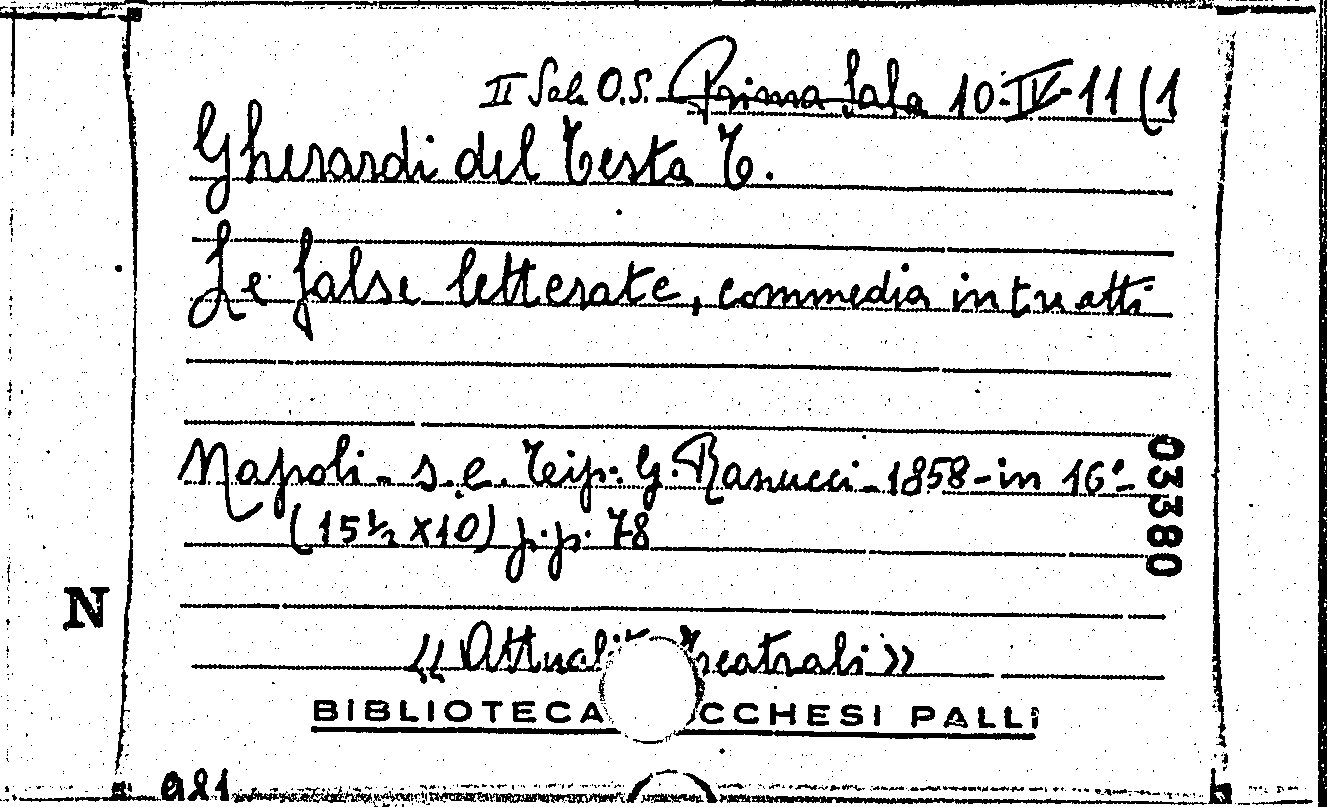 II Sala O.S. Prima Sala 10-IV-11(1
Gherardi del Testa T.
Le false letterate, commedia in tre atti
Napoli - s.e. Teip. G. Ranucci - 1858 - in 16° -
(15½ x 10) p.p. 78
03380
N
« Attuali Teatrali »
BIBLIOTECA CCHESI PALLI
981